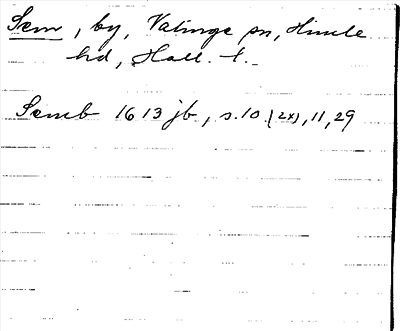 Sem, by, Valinge sn, Himle
hd, Hall. l.
Semb 1613 jb, s.10 (2x), 11, 29